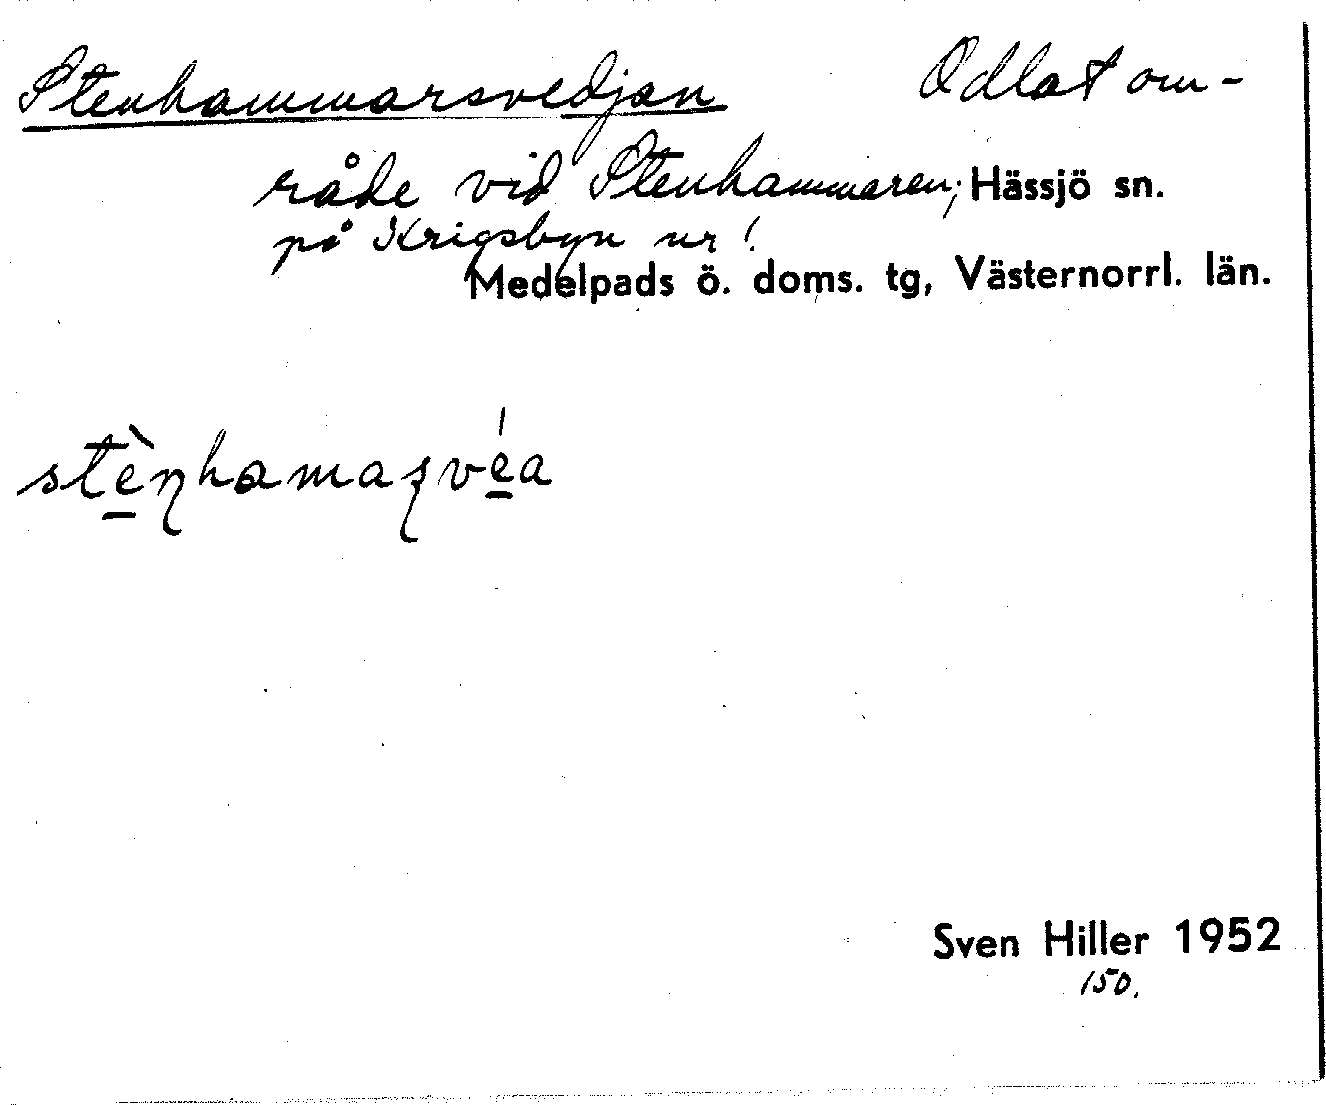 Stenhammarsvedjan Odlat om-
råde vid Stenhammaren, Hässjö sn.
på Krigsbyn nr 1.
Medelpads ö. doms. tg, Västernorrl. län.
stèn̠hamaʂvéa
Sven Hiller 1952
150.